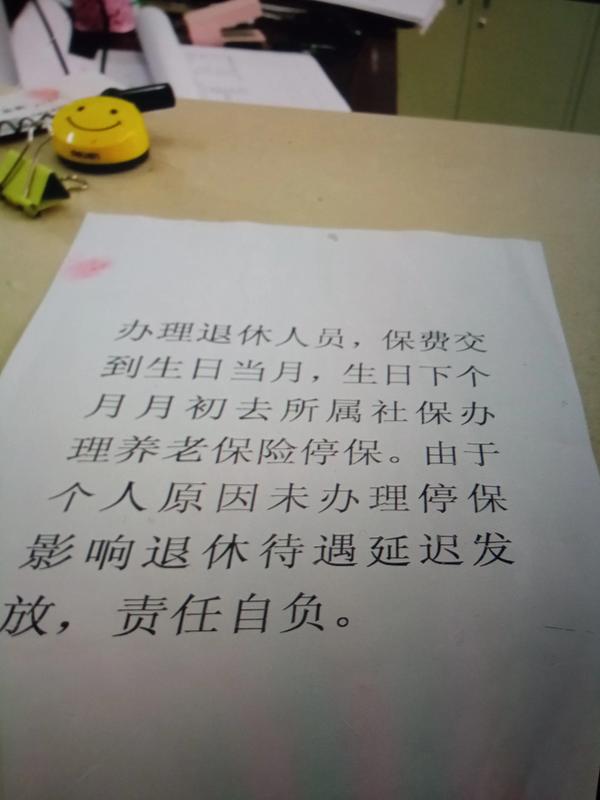 办理退休人员，保费交
到生日当月，生日下个
月月初去所属社保办
理养老保险停保。由于
个人原因未办理停保
影响退休待遇延迟发
放，责任自负。